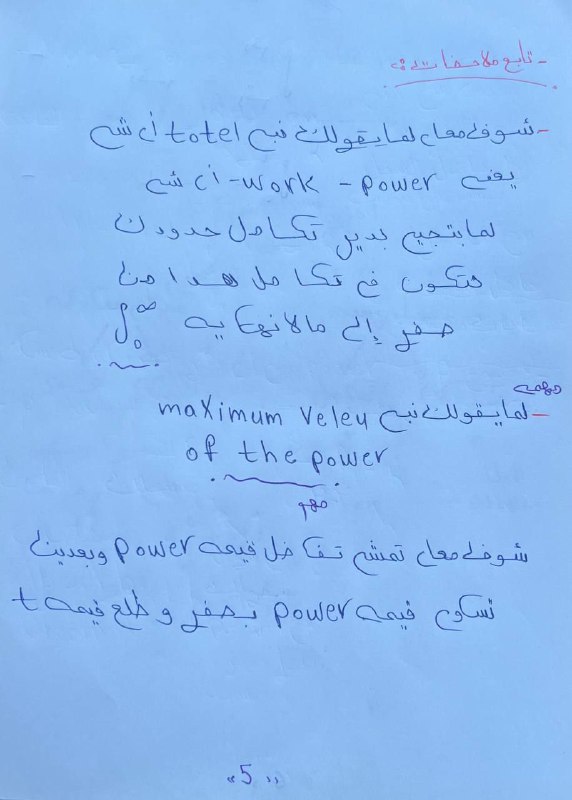 - تابع ملاحظات :-
- شوف معاي لما يقولك نبي totel أي شي
يعني work - power - أي شي
لما بتجي بدير تكامل حدودك
حتكون في تكامل هدا من
صفر إلى مالانهايه ∫₀^∞
مهمه
- لما يقولك نبي maximum veleu
of the power
مهم
شوف معاي تمشي تفاضل قيمه power وبعدين
تساوي قيمه power بصفر وطلع قيمه t
"5"